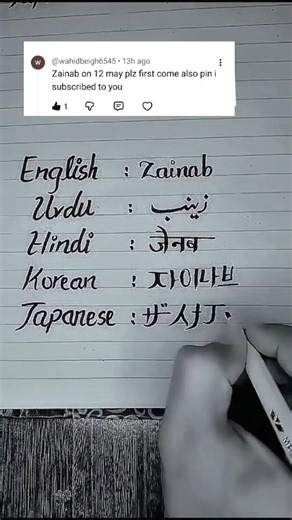 @wahidbeigh6545 • 13h ago
Zainab on 12 may plz first come also pin i
subscribed to you
1
English : Zainab
Urdu : زینب
Hindi : जैनब
Korean : 자이나브
Japanese : ザイナ